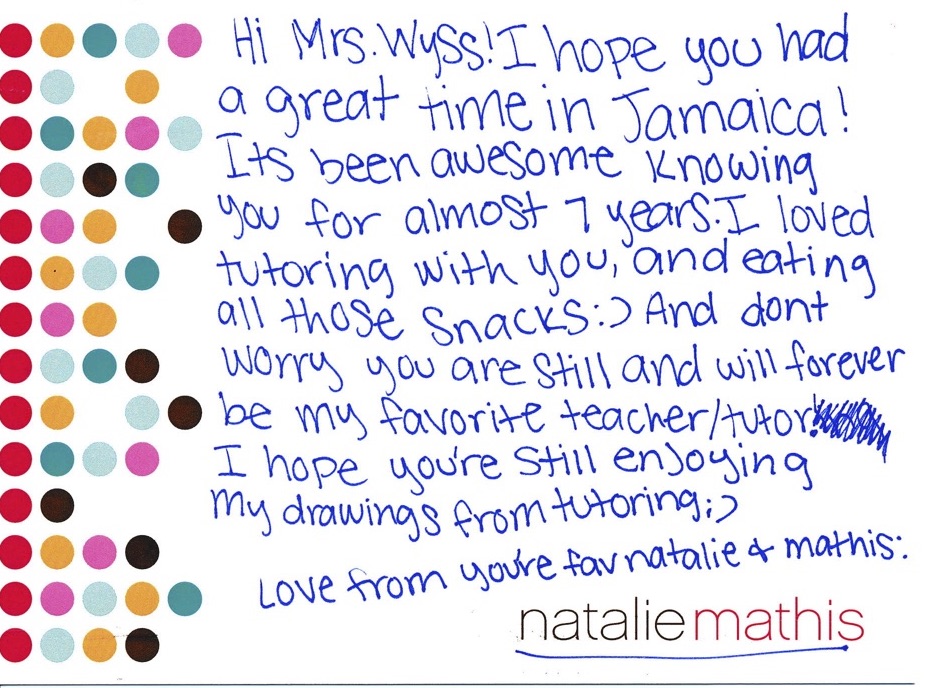 Hi Mrs. Wyss! I hope you had
a great time in Jamaica!
Its been awesome knowing
you for almost 7 years. I loved
tutoring with you, and eating
all those snacks :) And dont
worry you are still and will forever
be my favorite teacher/tutor!
I hope you're still enjoying
my drawings from tutoring ;)
Love from you're fav natalie & mathis:
natalie mathis